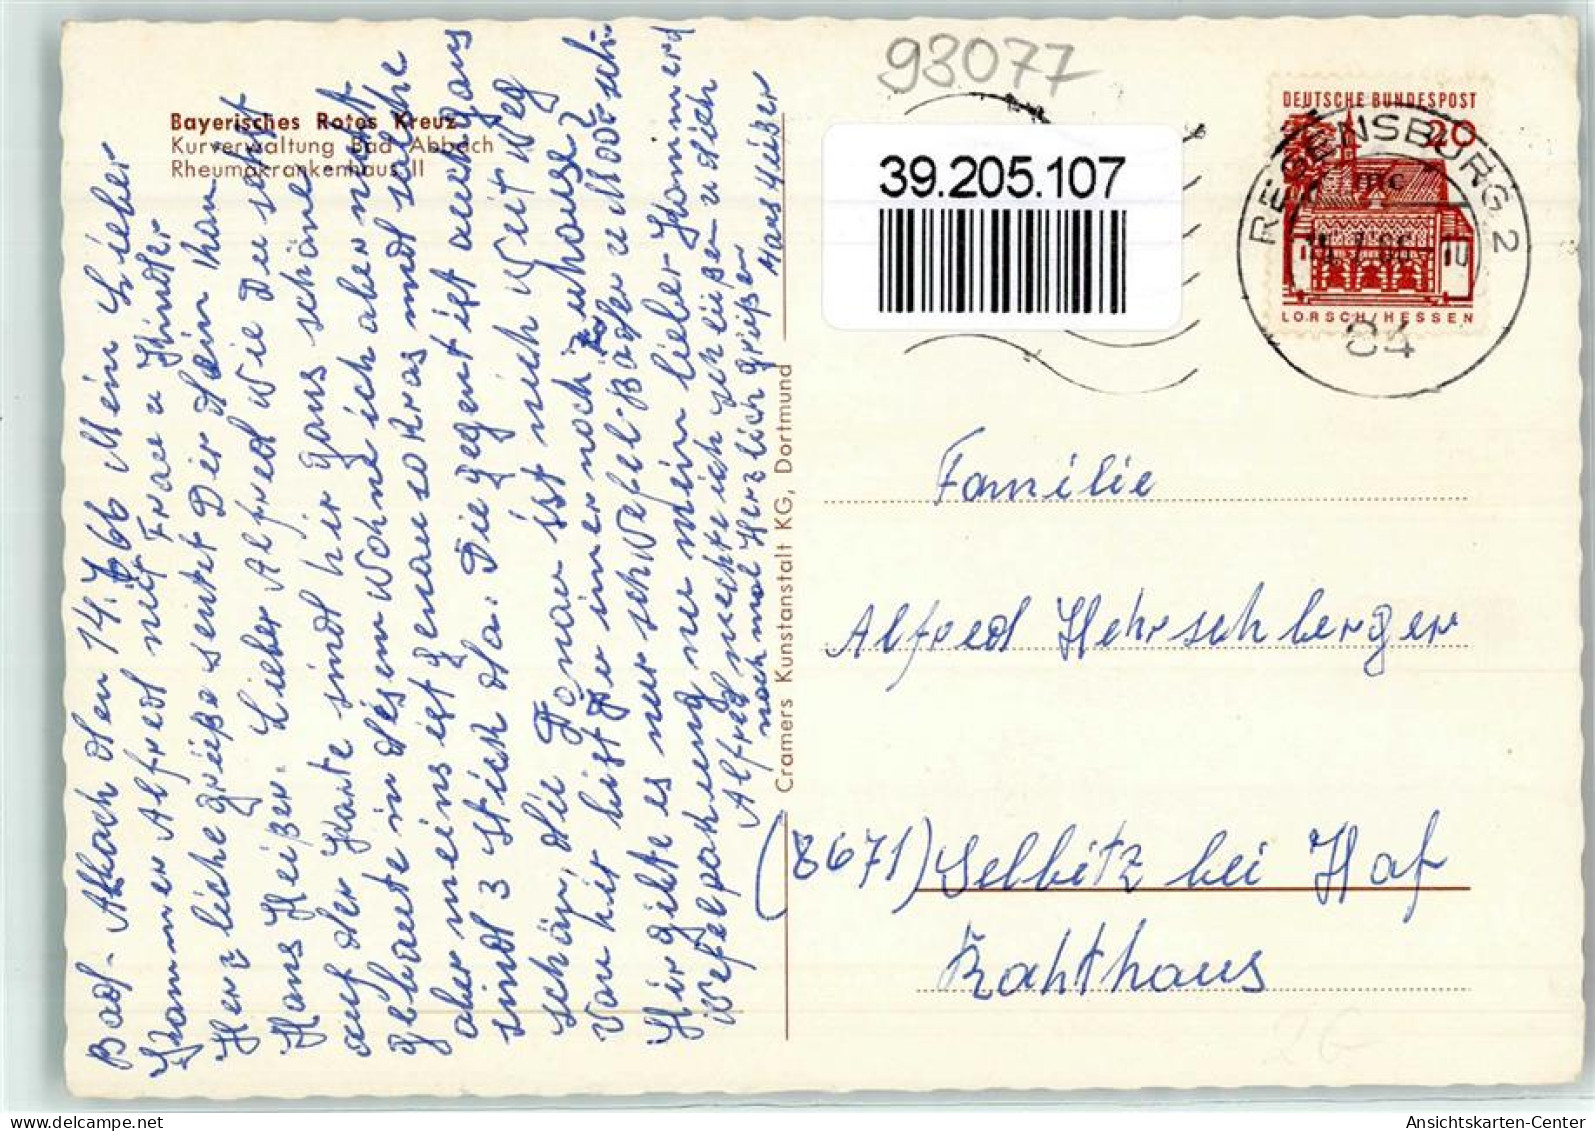 Bayerisches Rotes Kreuz
Kurverwaltung Bad Abbach
Rheumakrankenhaus II
Bad-Abbach den 14.7.66 Mein Lieber
Kammer Alfred mit Frau u Kinder
Herzliche grüße sentet Dir dein Kam
Hans Heißer. Lieber Alfred wie Du sehst
auf der Karte sindt hir gans schöne
gebaute in disem Wohne ich aber nicht
aber meins ist genau so kras nndt solche
sindt 3 stick da. Die gegent ist auch gans
schön, die Donau ist nich weit weg
Von hir bist Du imer noch zuhause?
Hir gibts es nur schwefel-Bäder u Moor-
nu mein lieber Kammerd
Alfred mechte ich schlißen u dich
noch mal Herzlich grüßen
Hans Heißer
Cramers Kunstanstalt KG, Dortmund
93077
39.205.107
DEUTSCHE BUNDESPOST
20
LORSCH/HESSEN
REGENSBURG 2
84
Familie
Alfred Hehrschberger
(8671) Selbitz bei Hof
Rahthaus
2€
AnsichtsKarten-Center